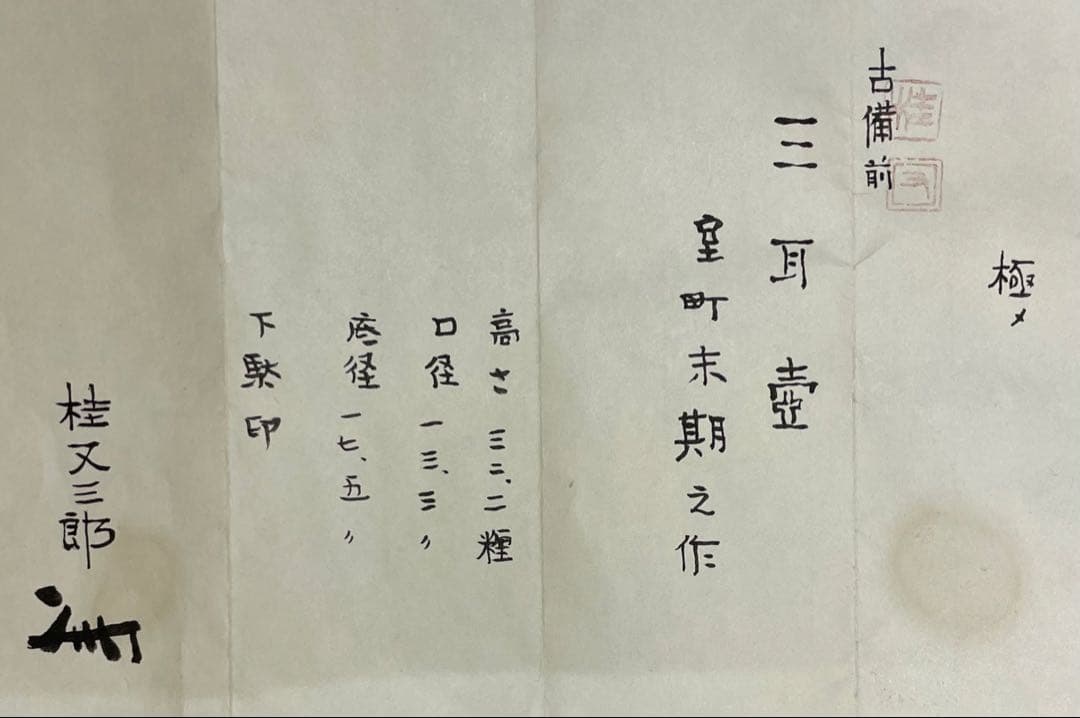 極メ
古備前
三耳壷
室町末期之作
高さ 三二、二糎
口径 一三、三〃
底径 一七、五〃
下駄印
桂又三郎